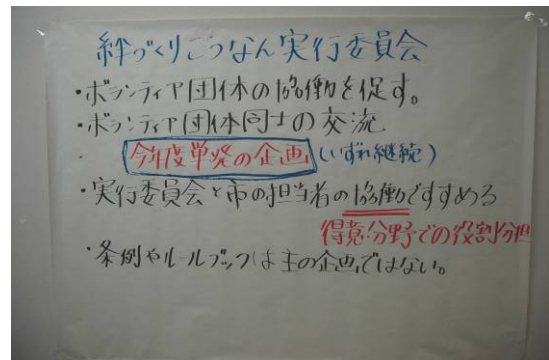 絆づくりこうなん実行委員会
・ボランティア団体の協働を促す。
・ボランティア団体同士の交流
・今年度単発の企画(いずれ継続)
・実行委員会と市の担当者の協働ですすめる
得意分野での役割分担
・条例やルールブックは主の企画ではない。